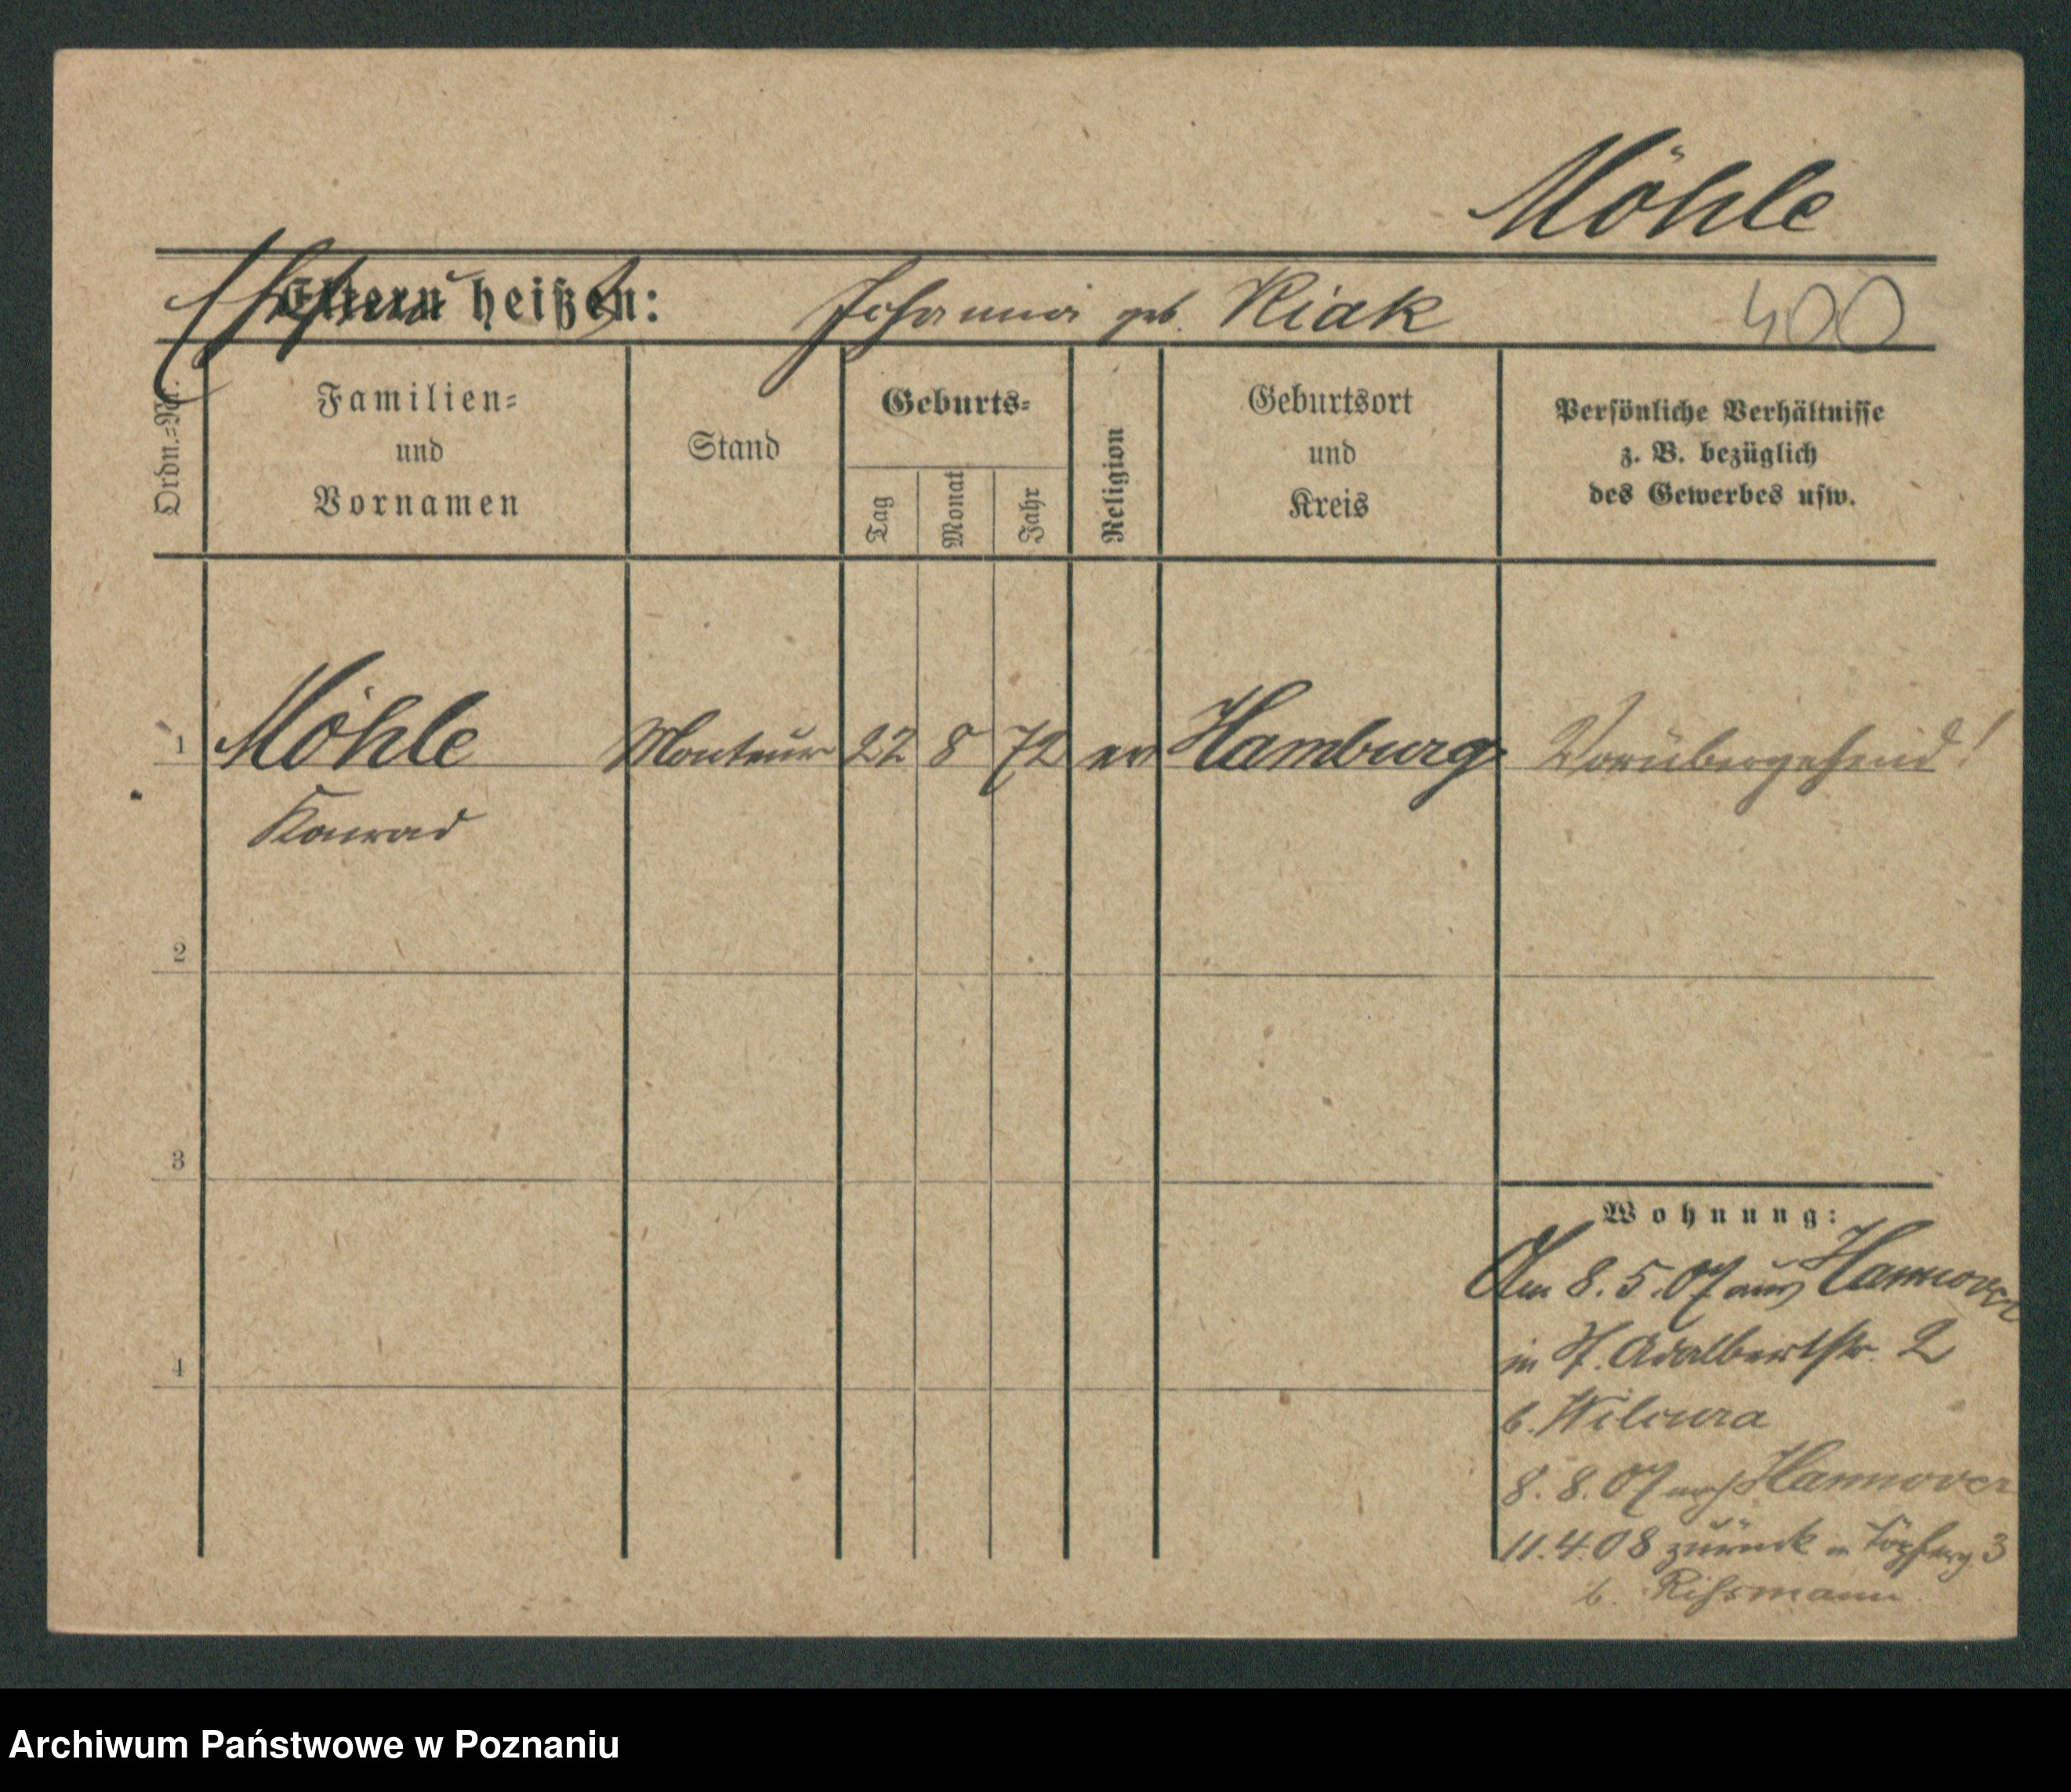 Möhle
Eltern heißen: Johanna geb. Kiak 400
Ordn.=Nr.
Familien=
und
Vornamen
Stand
Geburts=
Tag
Monat
Jahr
Religion
Geburtsort
und
Kreis
Persönliche Verhältnisse
z. B. bezüglich
des Gewerbes usw.
1 Möhle Monteur 22 8 72 ev Hamburg Vorübergehend!
Konrad
2
3
4
Wohnung:
Am 8.5.07 aus Hannover
in St. Adalbertstr. 2
b. Wilcura
8.8.07 nach Hannover
11.4.08 zurück in Töpferg. 3
b. Rissmann
Archiwum Państwowe w Poznaniu